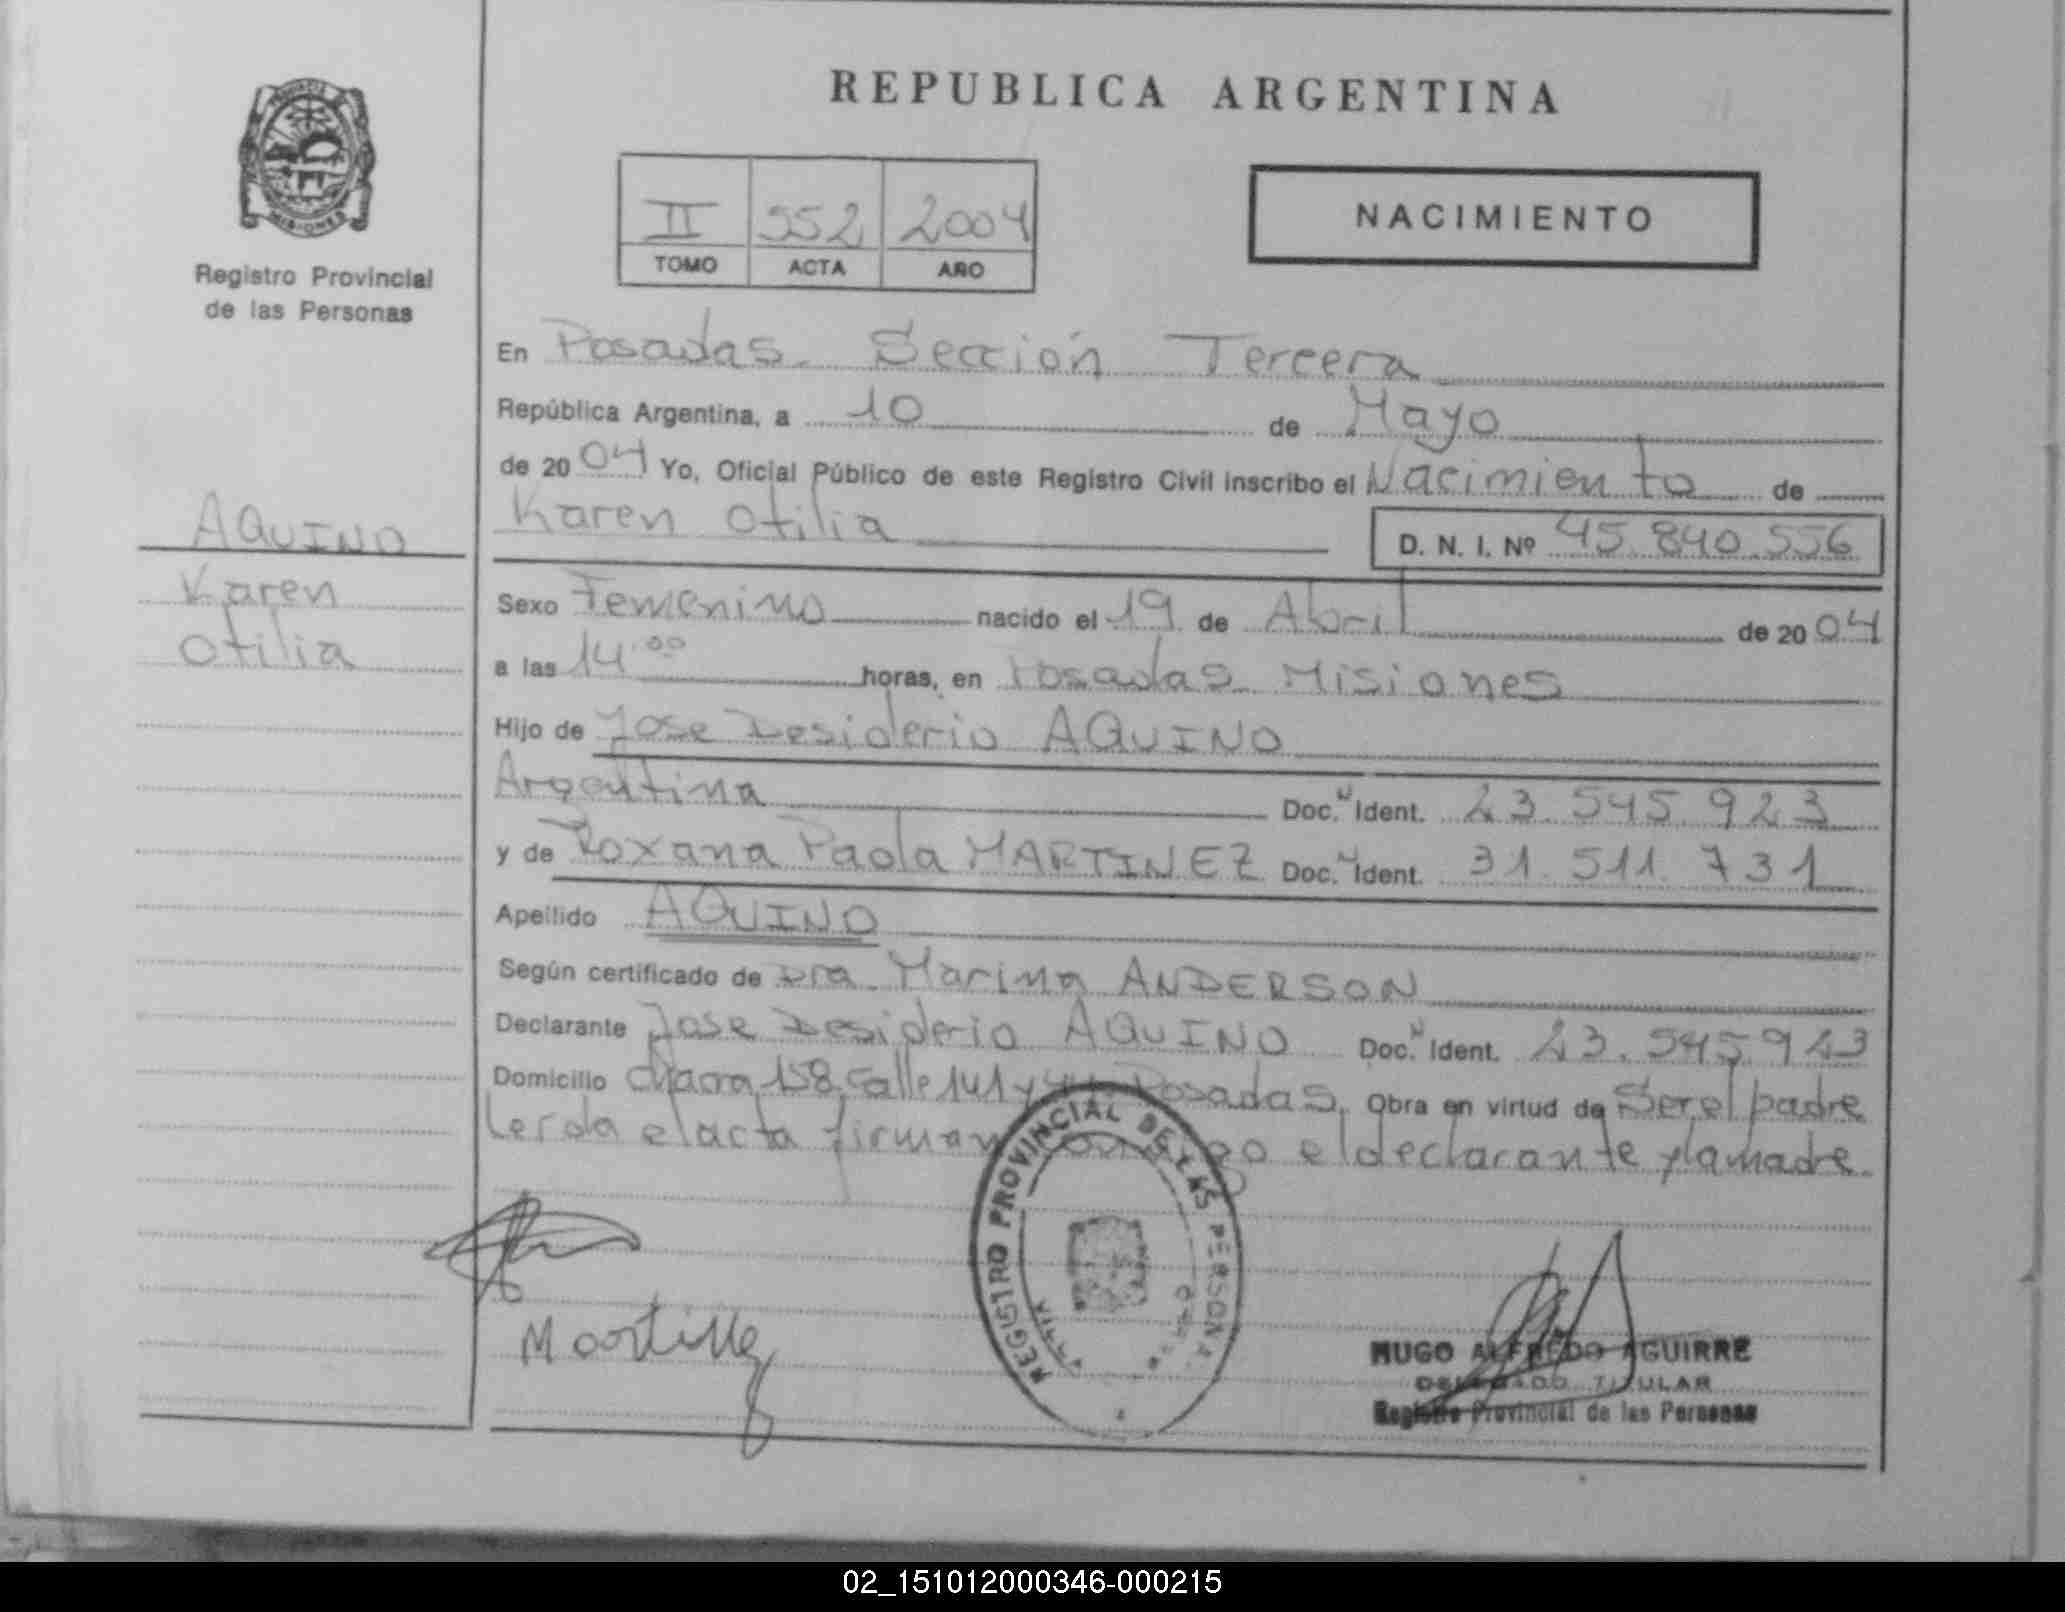 REPUBLICA ARGENTINA
PROVINCIA DE
MISIONES
Registro Provincial
de las Personas
II 552 2004
TOMO ACTA AÑO
NACIMIENTO
En Posadas. Sección Tercera
República Argentina, a 10 de Mayo
de 2004 Yo, Oficial Público de este Registro Civil inscribo el Nacimiento de
Karen Otilia
D. N. I. Nº 45.840.556
AQUINO
Karen
Otilia
Sexo Femenino nacido el 19 de Abril de 2004
a las 14.00 horas, en Posadas Misiones
Hijo de Jose Desiderio AQUINO
Argentina Doc. N Ident. 23.545.923
y de Roxana Paola MARTINEZ Doc. N Ident. 31.511.731
Apellido AQUINO
Según certificado de Dra. Marina ANDERSON
Declarante Jose Desiderio AQUINO Doc. N Ident. 23.545.923
Domicilio Chacra 158 Calle 141 y Posadas. Obra en virtud de Ser el padre
Leida el acta firman conmigo el declarante y la madre.
Martinez
REGISTRO PROVINCIAL DE LAS PERSONAS
HUGO ALFREDO AGUIRRE
DELEGADO TITULAR
Registro Provincial de las Personas
02_151012000346-000215